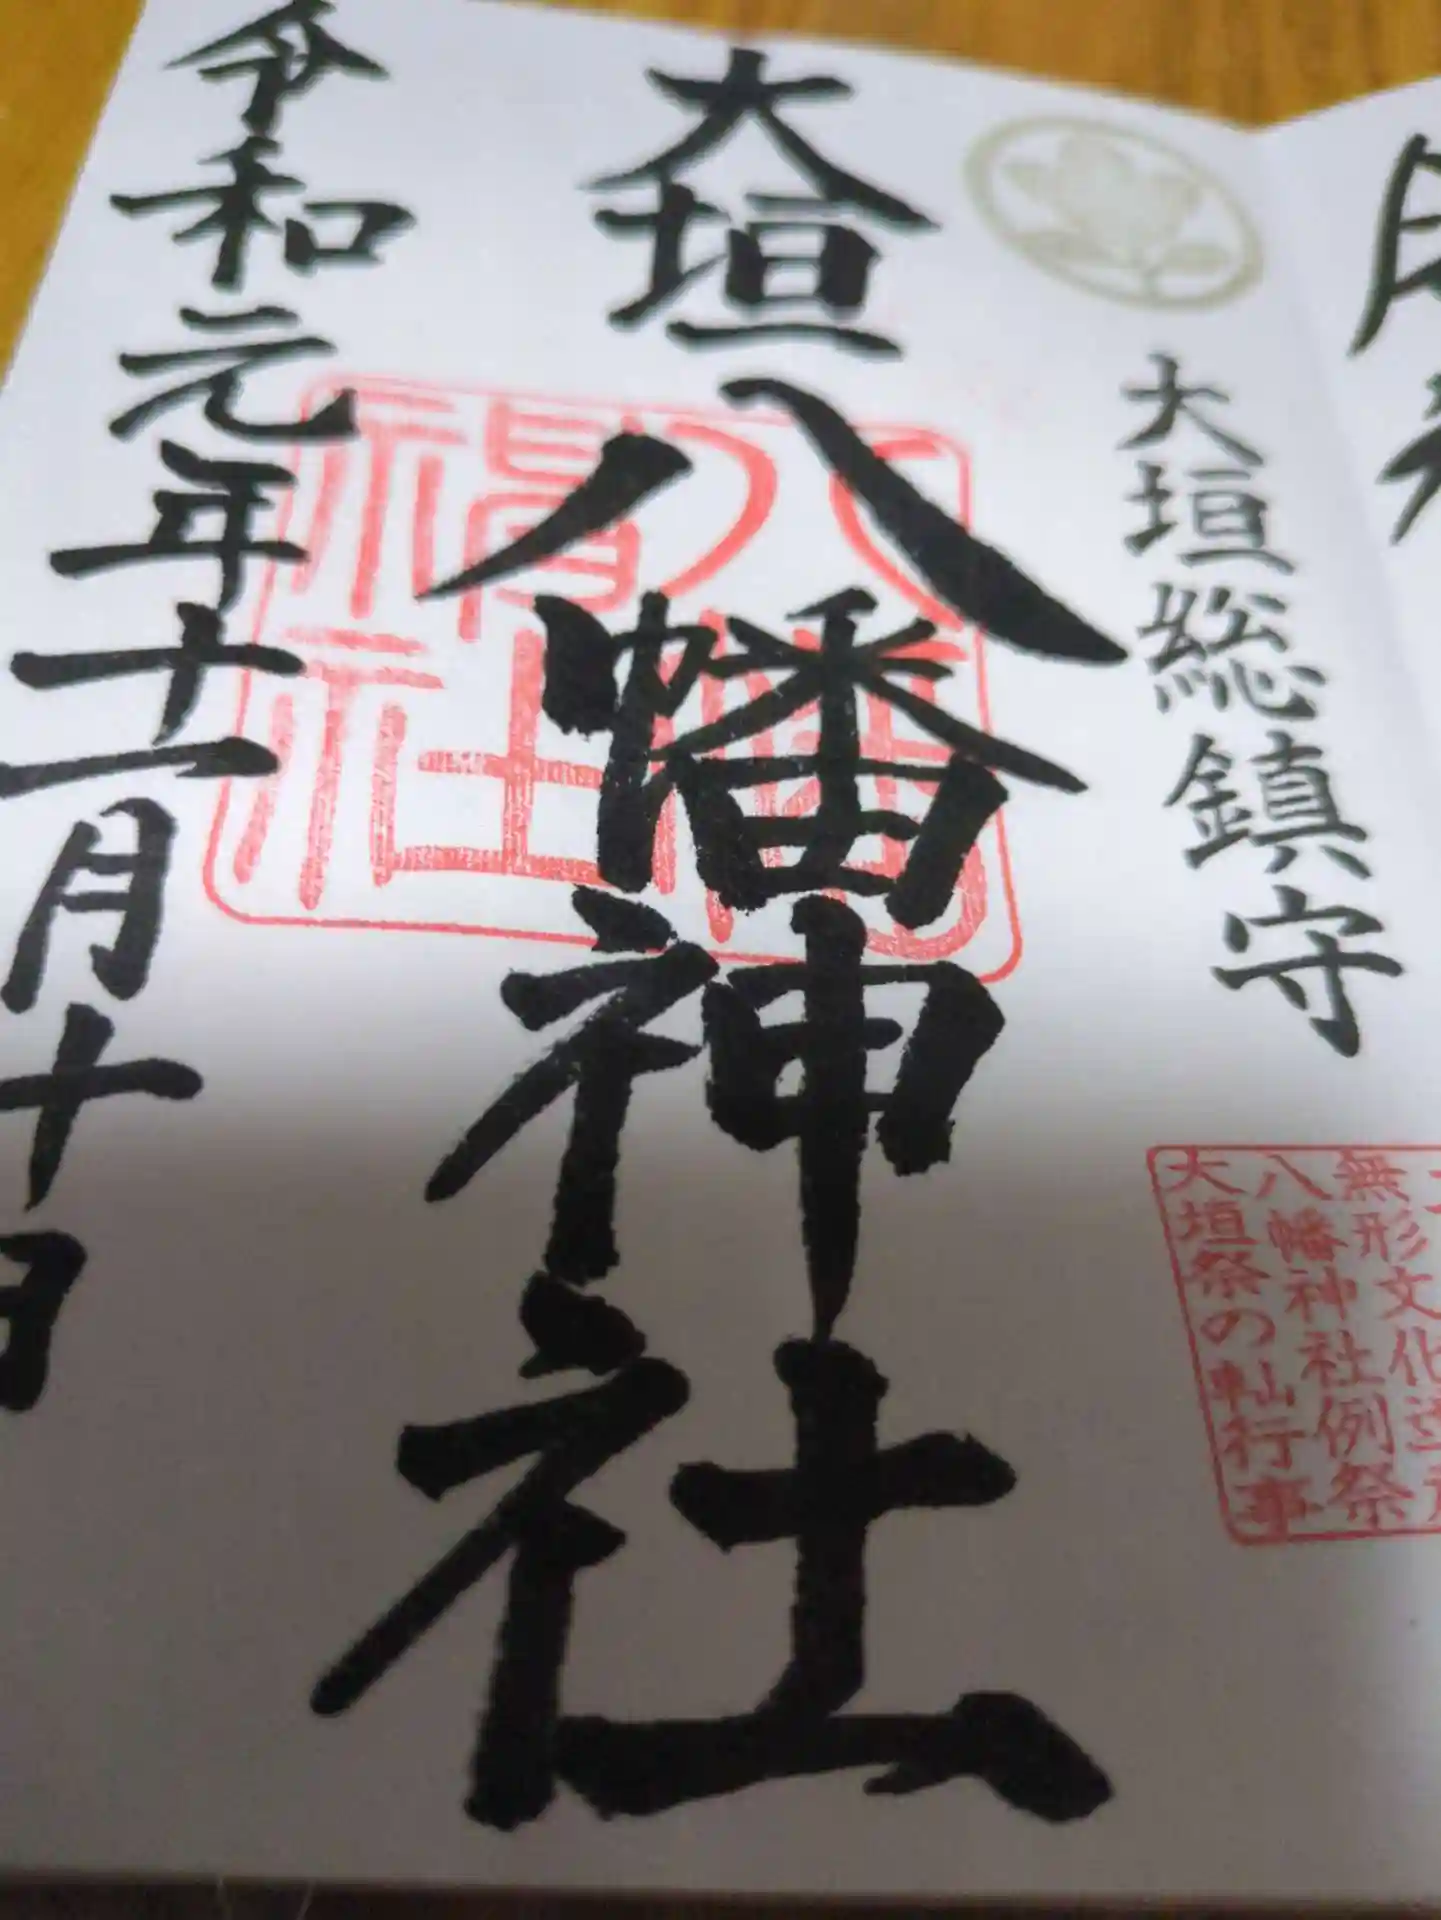 大垣総鎮守
無形文化遺産
八幡神社例祭
大垣祭の軕行事
大垣八幡神社
八幡神社
令和元年十一月十日